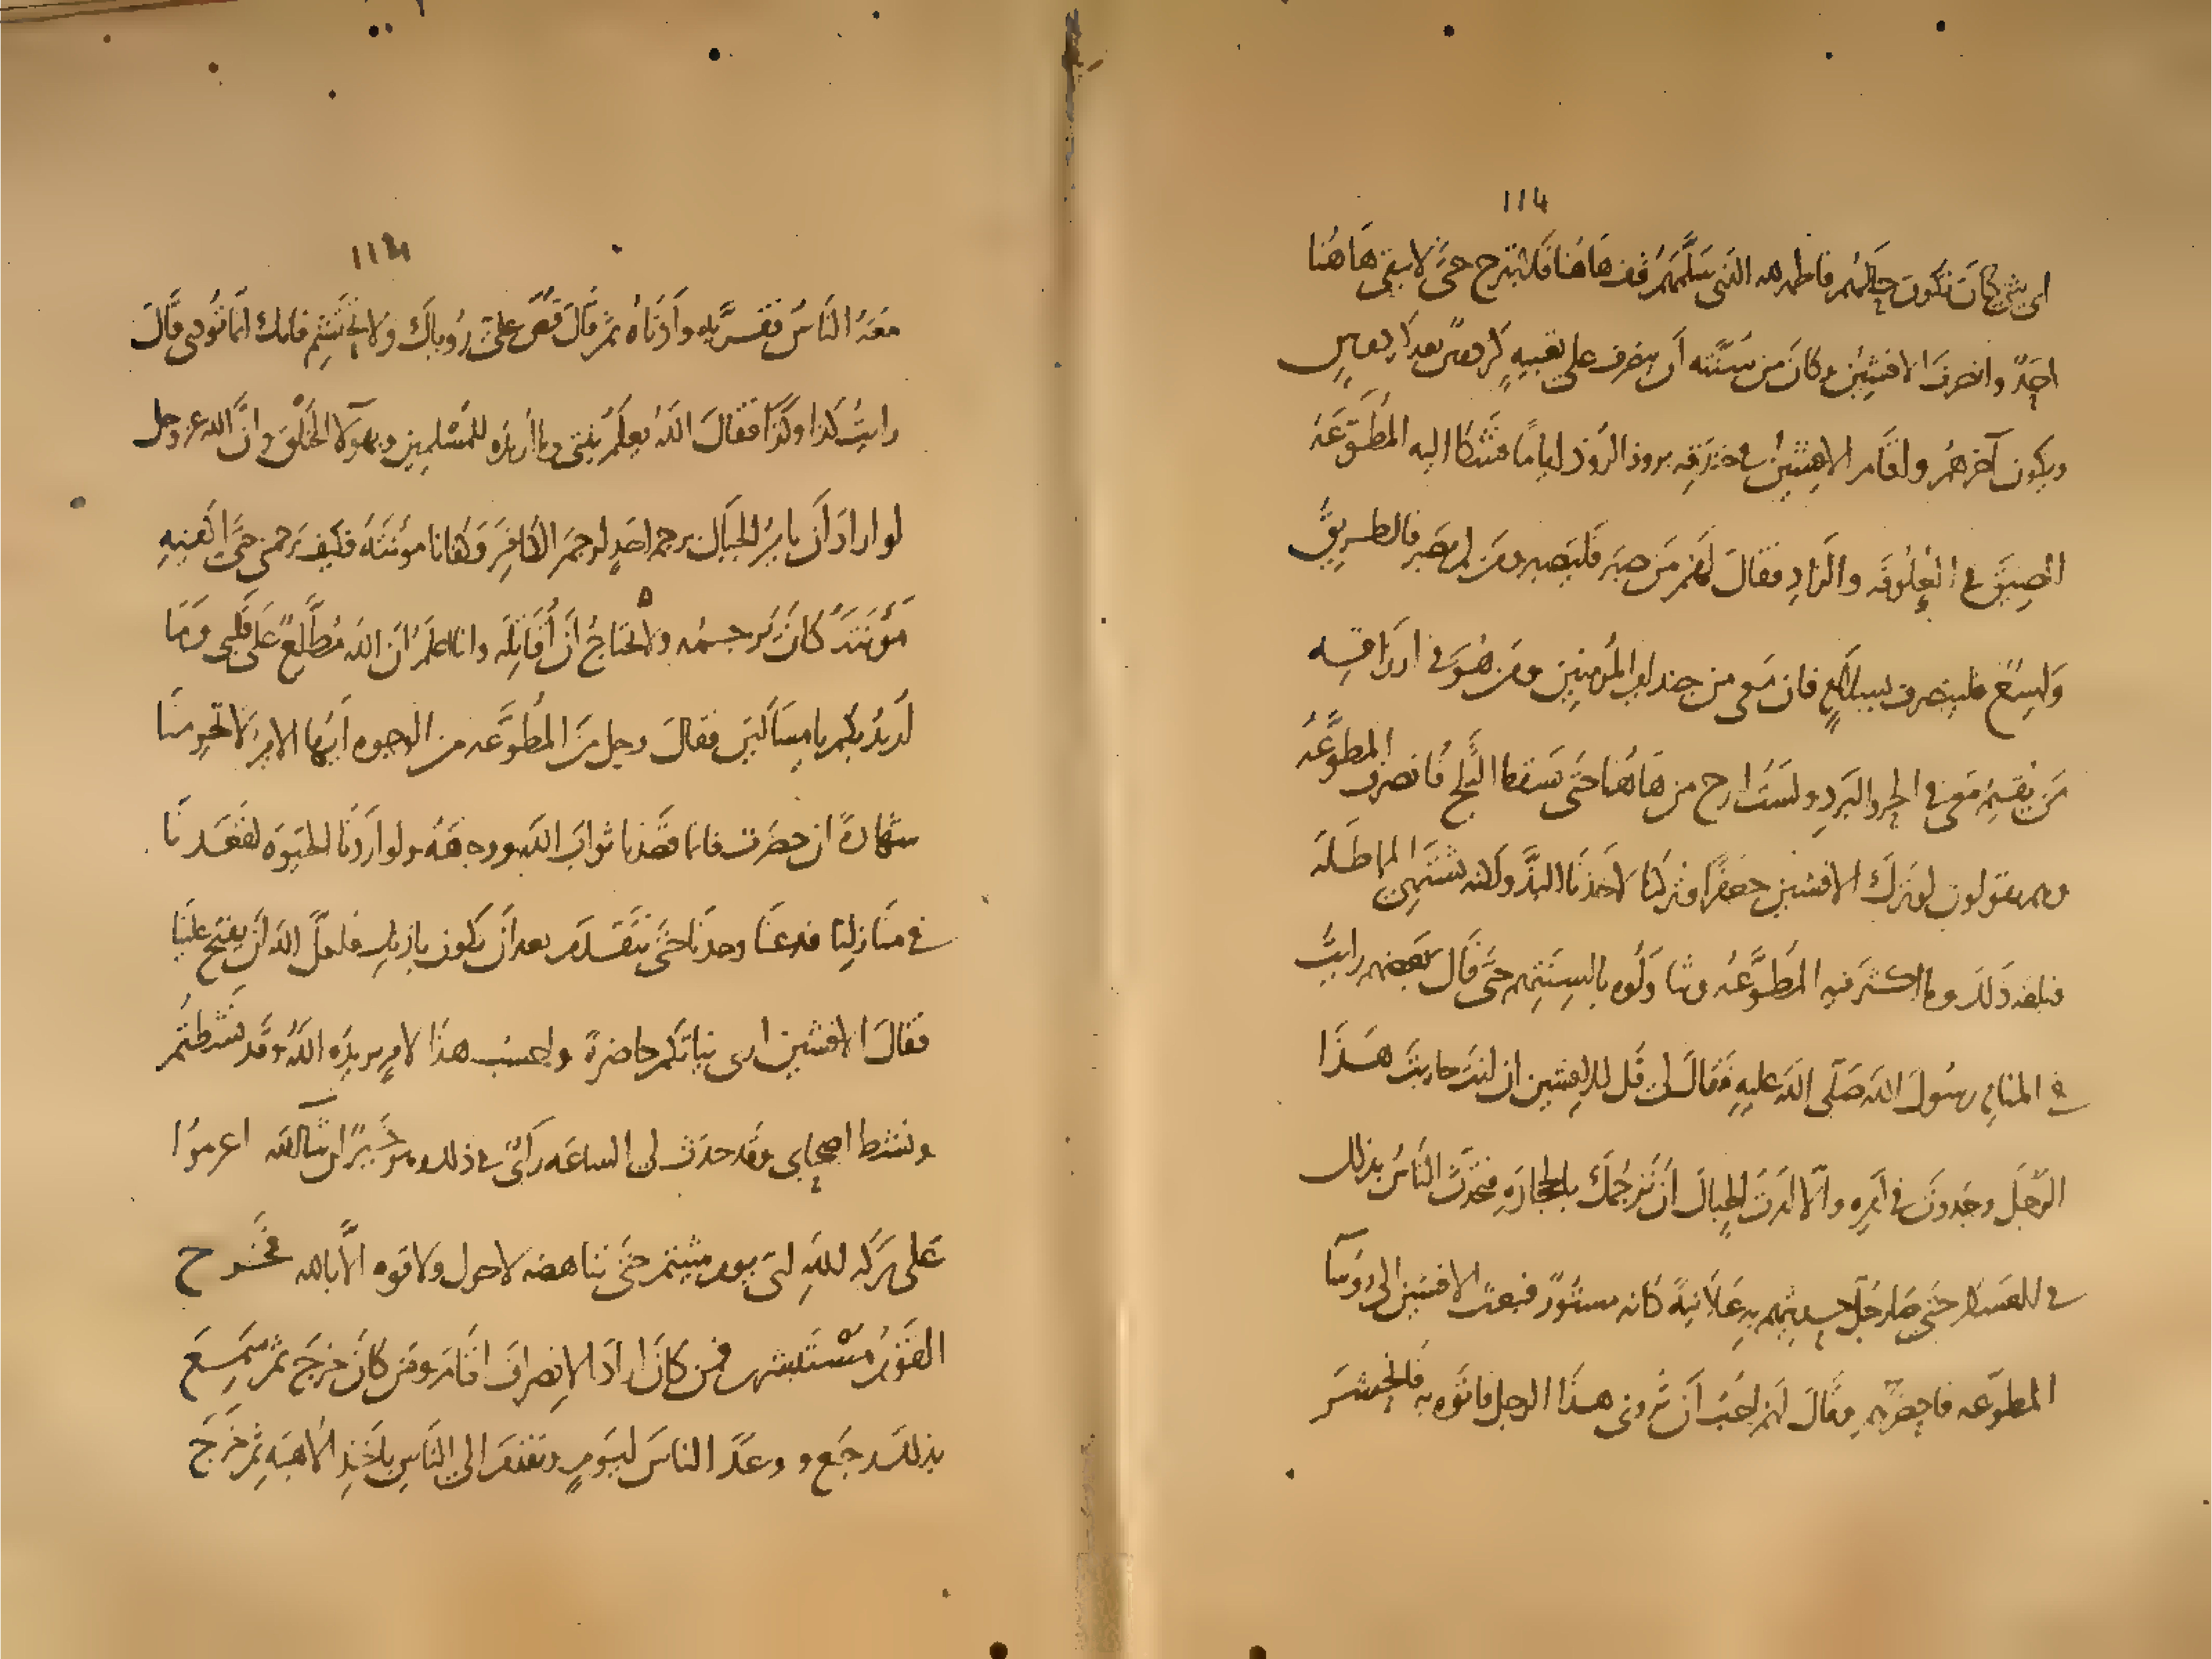 ١١٤
اى شى كان تكون حالهم فاطهر لله الذى سلمهم قف هاهنا فلا تبرح حتى لا يبقى هاهنا
احد وانصرف الافشين وكان من سنته ان ينصرف على تعبيه كردوس بعد كردوس
ويكون آخرهم واقام الافشين فى خندقه بروذ الروذ اياما فشكا اليه المطوعه
الضيق فى العلوفه والزاد فقال لهم من صبر فليصبر ومن لم يصبر فالطريق
واسع فلينصرف بسلام فان معى من جند امير المومنين ومن هو فى ارزاقه
من يقيم معى فى الحر والبرد ولست ابرح من هاهنا حتى يسقط الثلج فانصرف المطوعه
وهم يقولون لو ترك الافشين جعفرا وتركنا لاخذنا البذ ولكنه يشتهى المماطله
فبلغه ذلك وما اكثر فيه المطوعه وتناولوه بالسنتهم حتى قال بعضهم رايت
فى المنام رسول الله صلى الله عليه فقال لى قل للافشين ان انت حاربت هذا
الرجل وجددت فى امره والا امرت الجبال ان ترجمك بالحجاره فتحدث الناس بذلك
فى العسكر حتى صار جل حديثهم به علانية كانه مستور فبعث الافشين الى روسا
المطوعه فاحضرهم وقال لهم احب ان ترونى هذا الرجل فاتوه به فانحشر
١١٤
معه الناس فقربه وادناه ثم قال قص على روياك ولا تحتشم فانك انما تودى قال
رايت كذا وكذا فقال الله يعلم نيتى وما اريده للمسلمين وبهولا الخلق وان الله عز وجل
لو اراد ان يامر الجبال برجم احد لرجم الكافر وكفانا مونته فكيف يرجمنى حتى اكفيه
مونته كان يرجمه ولا يحتاج ان اقاتله وانا اعلم ان الله مطلع على قلبى وما
اريد بكم يا مساكين فقال رجل من المطوعه من الوجوه ايها الامير لا تحرمنا
شهادة ان حضرت فانما قصدنا ثواب الله ووجهه ولو اردنا الحيوه لقعدنا
فى منازلنا فدعنا وحدنا حتى نتقدم بعد ان يكون باذنك فلعل الله ان يفتح علينا
فقال الافشين ارى نياتكم حاضرة واحسب هذا الامر يريده الله وقد نشطتم
ونشط اصحابى وقد حدث لى الساعه راى فى ذلك وهو خير ان شا الله اعزموا
على بركه الله اى يوم شيتم حتى نناهضه لا حول ولا قوه الا بالله فخرج
القوم مستبشرين فمن كان اراد الانصراف اقام ومن كان خرج ثم سمع
بذلك رجع و وعد الناس ليوم وتقدم الى الناس باخذ الاهبه ثم خرج